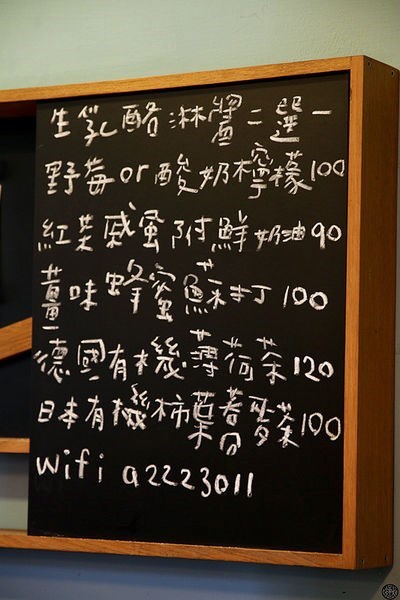 生乳酪淋醬二選一
野莓or酸奶檸檬100
紅茶戚風附鮮奶油90
薑味蜂蜜蘇打100
德國有機薄荷茶120
日本有機柿葉番茶100
wifi a2223011